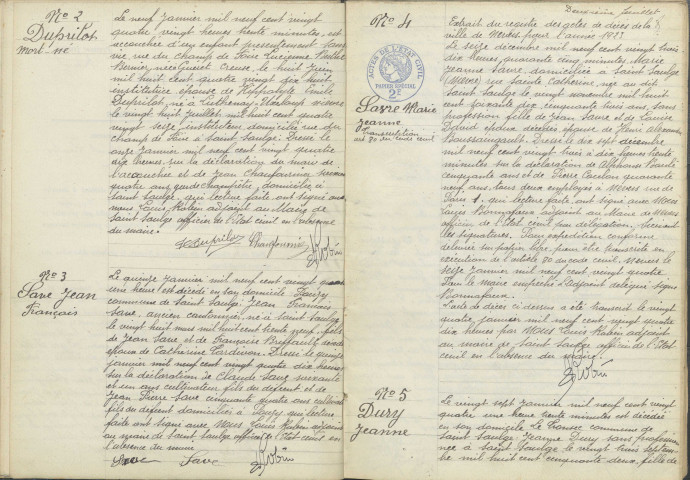 No 2
Duprilot
mort-né
Le neuf janvier mil neuf cent vingt
quatre, vingt heures trente minutes, est
accouchée d'un enfant présentement sans
vie, rue du champ de Foire Lucienne
Bernier, née Guéret le huit juin
mil huit cent quatre vingt dix huit
institutrice épouse de Hippolyte Emile
Duprilot, né à Luthenay-Uxeloup Nièvre
le vingt huit juillet mil huit cent quatre
vingt seize instituteur domiciliés rue du
champ de Foire à Saint Saulge. Dressé le
onze janvier mil neuf cent vingt quatre
dix heures, sur la déclaration du mari de
l'accouchée et de Jean Chaufournier
quatre ans garde domicilié à
Saint Saulge, qui lecture faite ont signé avec
nous Louis Robin adjoint au Maire de
Saint Saulge officier de l'état civil en l'absence
du maire.
Duprilot Chaufournier Robin
No 3
Save Jean
François
Le quinze janvier mil neuf cent vingt quatre
une heure est décédé en son domicile
commune de Saint Saulge, Jean François
Save, ancien cantonnier, né à Saint Saulge
le vingt huit mars mil huit cent trente neuf, fils
de Jean Save et de Françoise
époux de Catherine Dressé le quinze
janvier mil neuf cent vingt quatre dix heures
sur la déclaration de Claude Save soixante
et un ans cultivateur fils du défunt et de
Jean Pierre Save cinquante quatre ans cultivateur
fils du défunt domiciliés à qui lecture
faite ont signé avec Nous Louis Robin adjoint
au maire de Saint Saulge officier de l'état civil en
l'absence du maire
Save Save Robin
Deuxième feuillet
No 4
ACTES DE L'ETAT CIVIL
PAPIER SPECIAL
2F
Savre Marie
Jeanne
Transcription
art 80 du code civil
Extrait du registre des actes de décès de la
ville de Nevers pour l'année 1923
Le seize décembre mil neuf cent vingt trois
dix heures, quarante cinq minutes, Marie
Jeanne Savre domiciliée à Saint Saulge
(Nièvre) rue Sainte Catherine, née au dit
Saint Saulge le vingt novembre mil huit
cent soixante dix, cinquante trois ans, sans
profession fille de Jean Savre et de Louise
époux décédés épouse de Henri Alexandre
Boussaingault. Dressé le dix sept décembre
mil neuf cent vingt trois à dix heures trente
minutes sur la déclaration de Alphonse
cinquante ans et de Pierre quarante
neuf ans, tous deux employés à Nevers rue de
Paris qui lecture faite, ont signé avec Nous
Louis Bonnafoux adjoint au Maire de Nevers
officier de l'Etat civil par délégation. Suivent
les signatures. Pour expédition conforme
délivrée sur papier libre, pour être transcrite en
exécution de l'article 80 du code civil. Nevers le
seize janvier mil neuf cent vingt quatre
Pour le maire empêché l'adjoint délégué signé
Bonnafoux.
L'acte de décès ci dessus a été transcrit le vingt
quatre janvier mil neuf cent vingt quatre
dix heures par Nous Louis Robin adjoint
au maire de Saint Saulge officier de l'Etat
civil en l'absence du maire.
Robin
No 5
Dury
Jeanne
Le vingt sept janvier mil neuf cent vingt
quatre une heure trente minutes est décédée
en son domicile Le commune de
Saint Saulge, Jeanne Dury sans profession
née à Saint Saulge le vingt huit septem-
bre mil huit cent cinquante deux, fille de